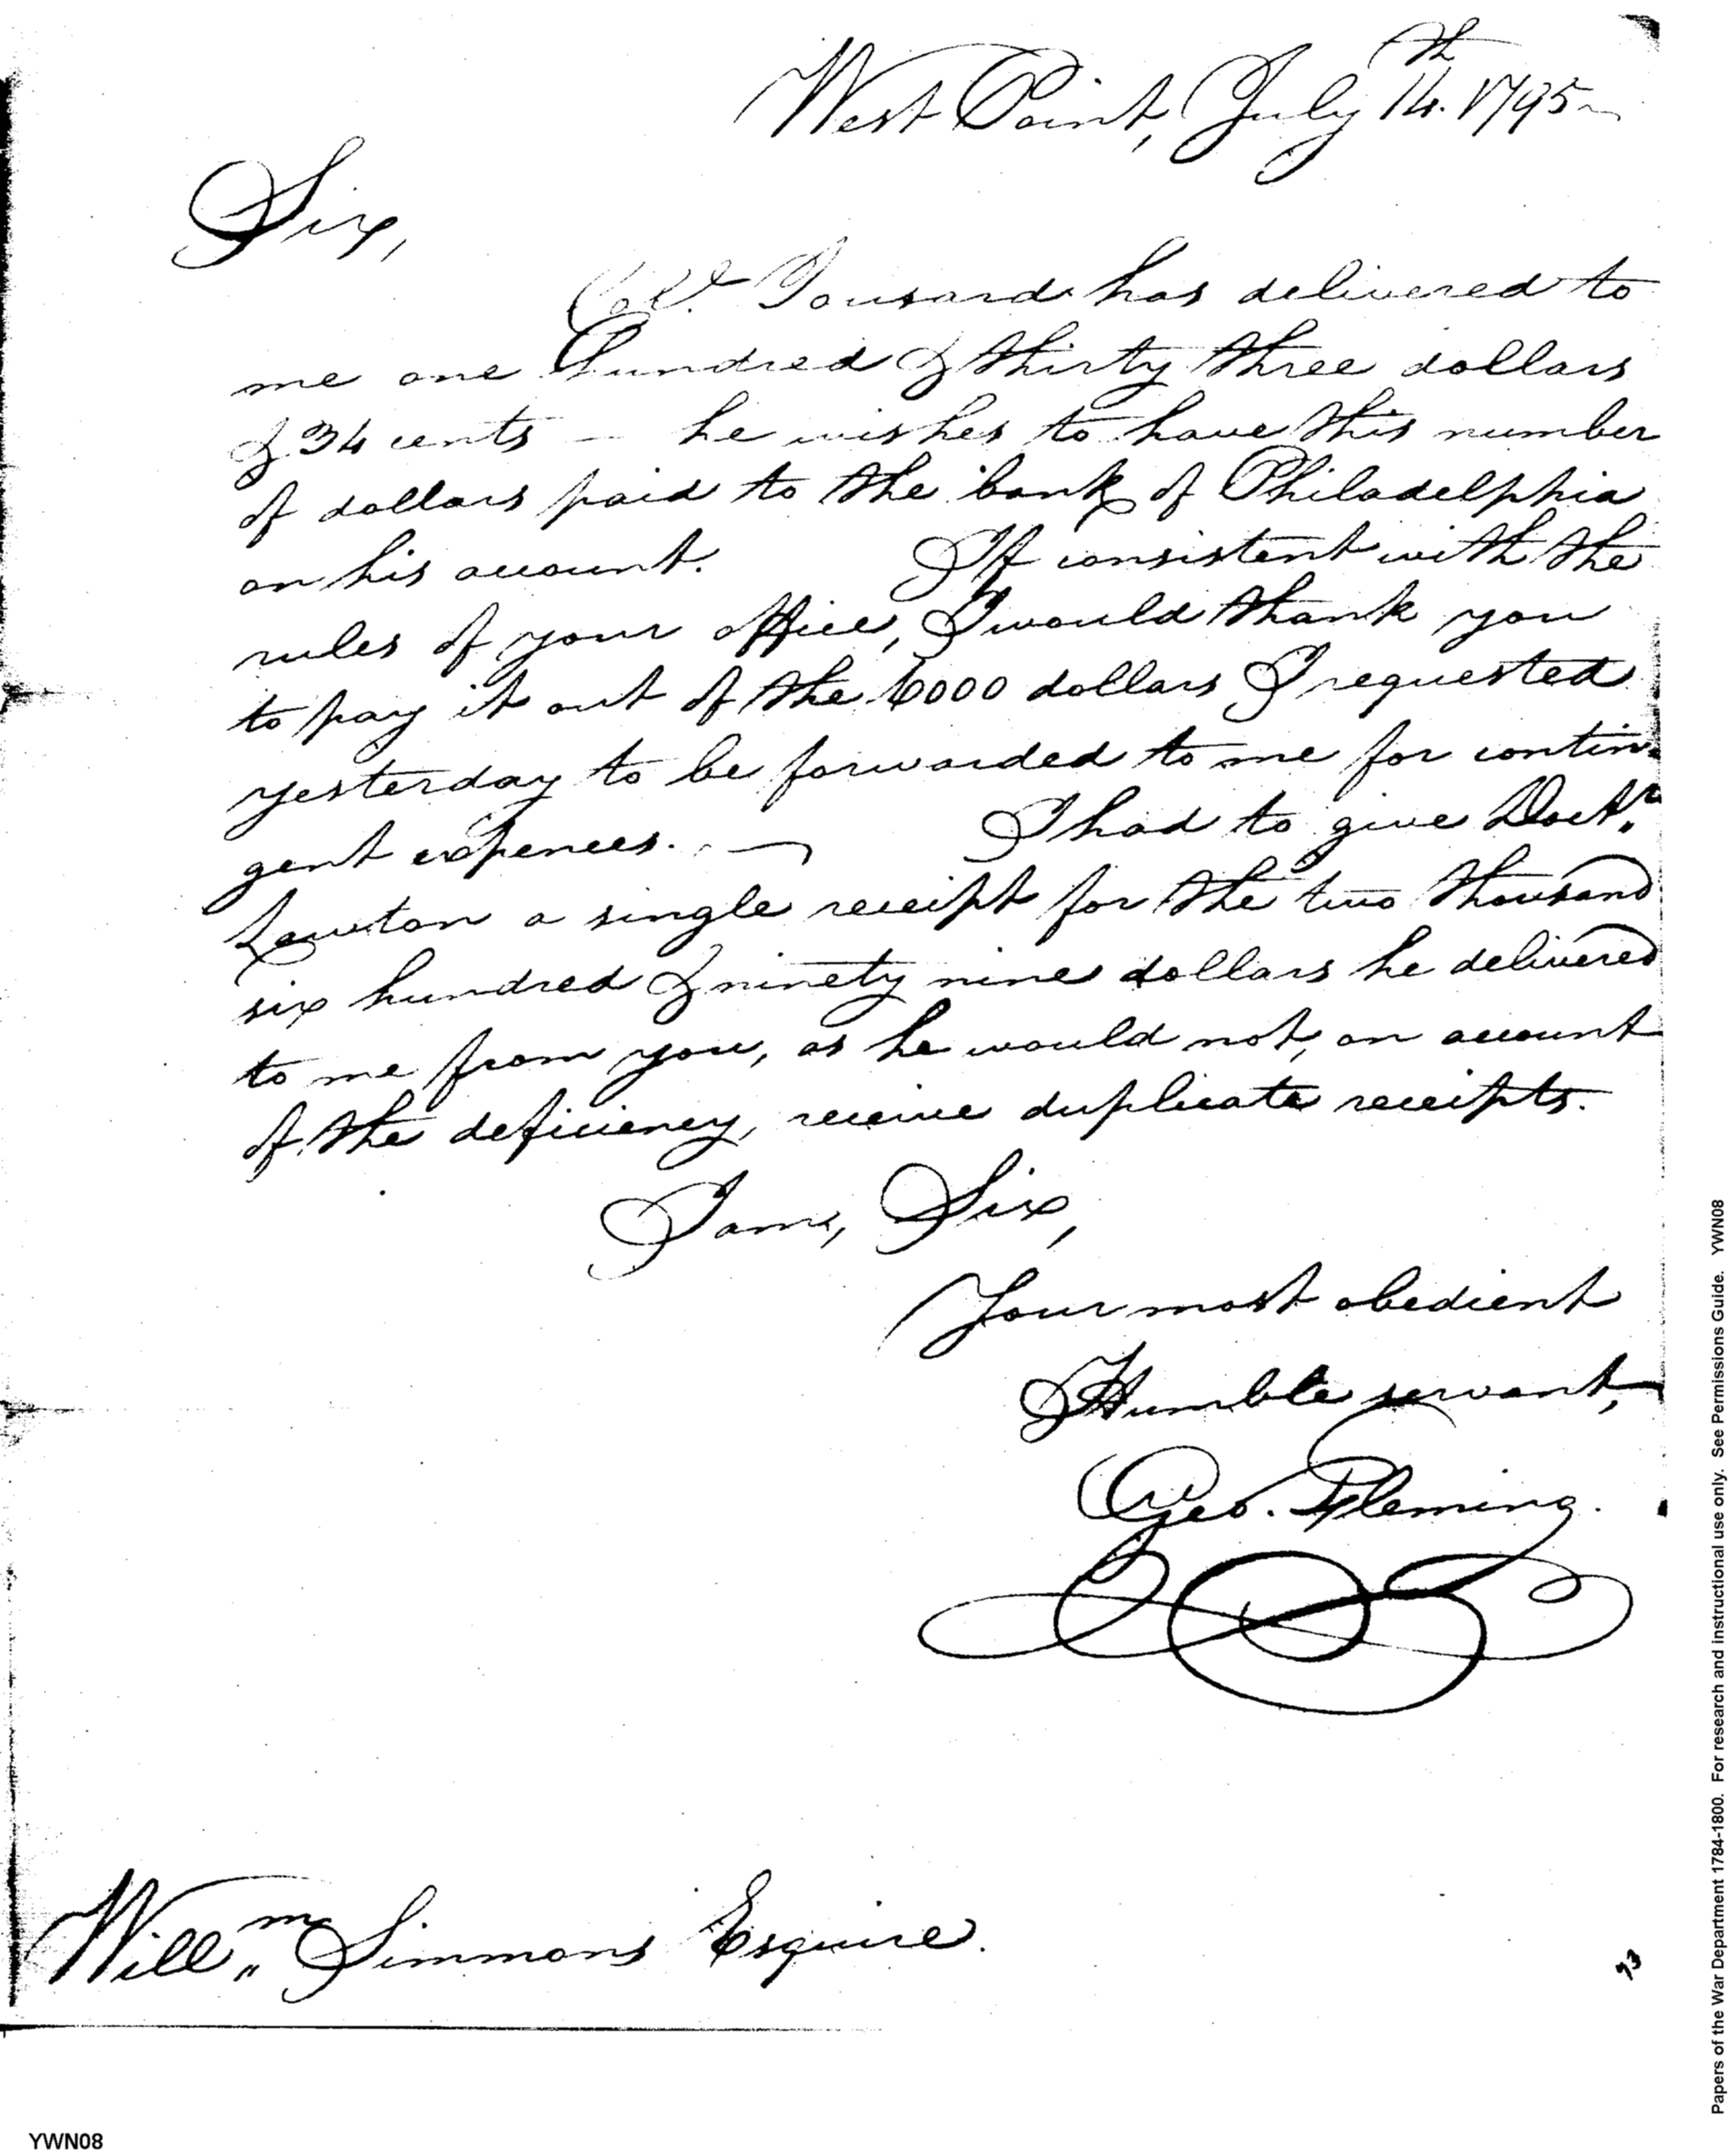 West Point, July 14th. 1795
Sir,
Colo. Tousard has delivered to
me one hundred & thirty three dollars
& 34 cents — he wishes to have this number
of dollars paid to the bank of Philadelphia
on his account. If consistent with the
rules of your office, I would thank you
to pay it out of the 6000 dollars I requested
yesterday to be forwarded to me for contin-
gent expences. — I had to give Doctr.
Lawton a single receipt for the two thousand
six hundred & ninety nine dollars he delivered
to me from you, as he would not, on account
of the deficiency, receive duplicate receipts.
I am, Sir,
Your most obedient
& Humble servant,
Geo. Fleming.
Willm Simmons Esquire.
93
YWN08
Papers of the War Department 1784-1800. For research and instructional use only. See Permissions Guide. YWN08